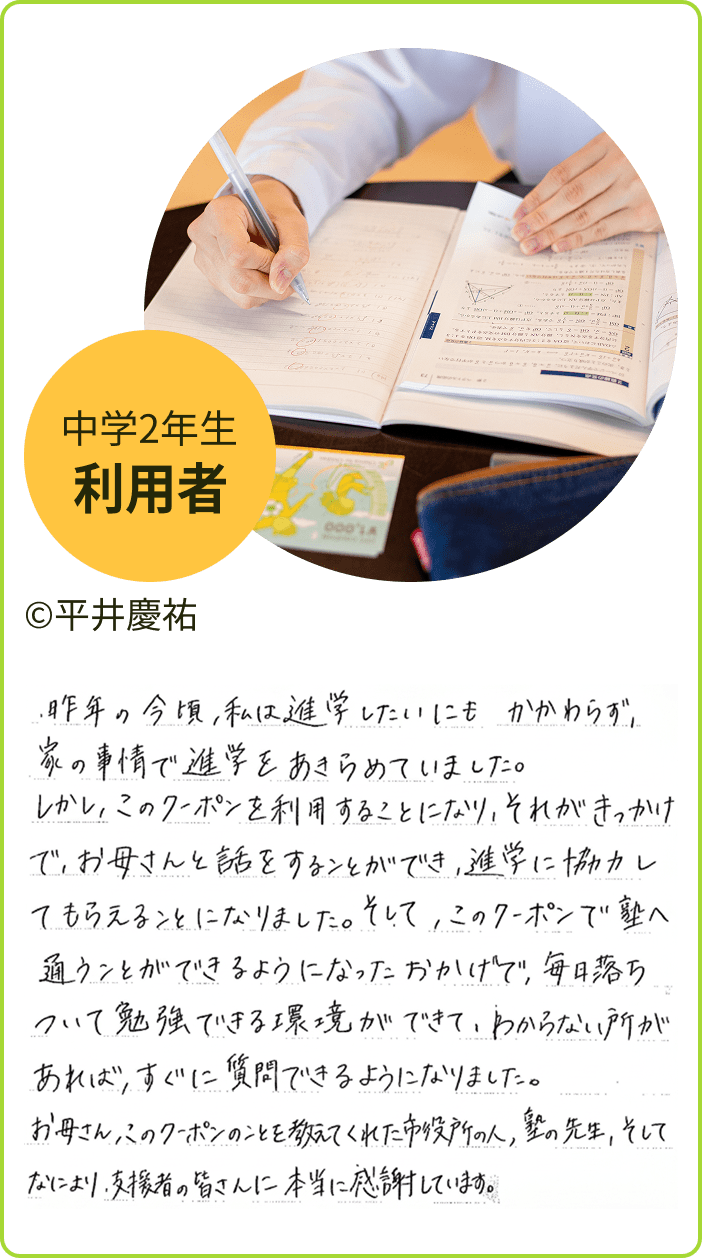 中学2年生
利用者
¥1,000
©平井慶祐
昨年の今頃,私は進学したいにも かかわらず,
家の事情で進学をあきらめていました。
しかし,このクーポンを利用することになり,それがきっかけ
で,お母さんと話をすることができ,進学に協力し
てもらえることになりました。そして,このクーポンで塾へ
通うことができるようになったおかげで,毎日落ち
ついて勉強できる環境ができて,わからない所が
あれば,すぐに質問できるようになりました。
お母さん,このクーポンのことを教えてくれた市役所の人,塾の先生,そして
なにより,支援者の皆さんに本当に感謝しています。